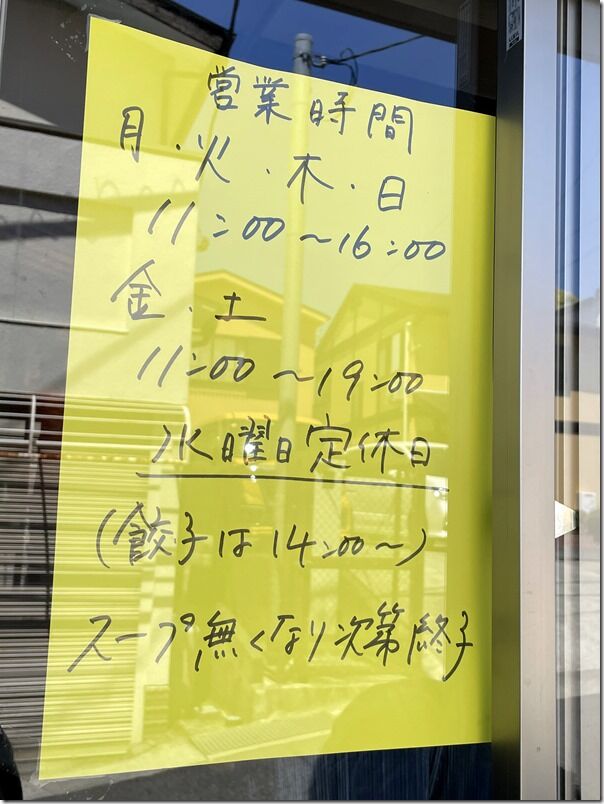 営業時間
月・火・木・日
11:00～16:00
金・土
11:00～19:00
水曜日定休日
(餃子は14:00～)
スープ無くなり次第終了